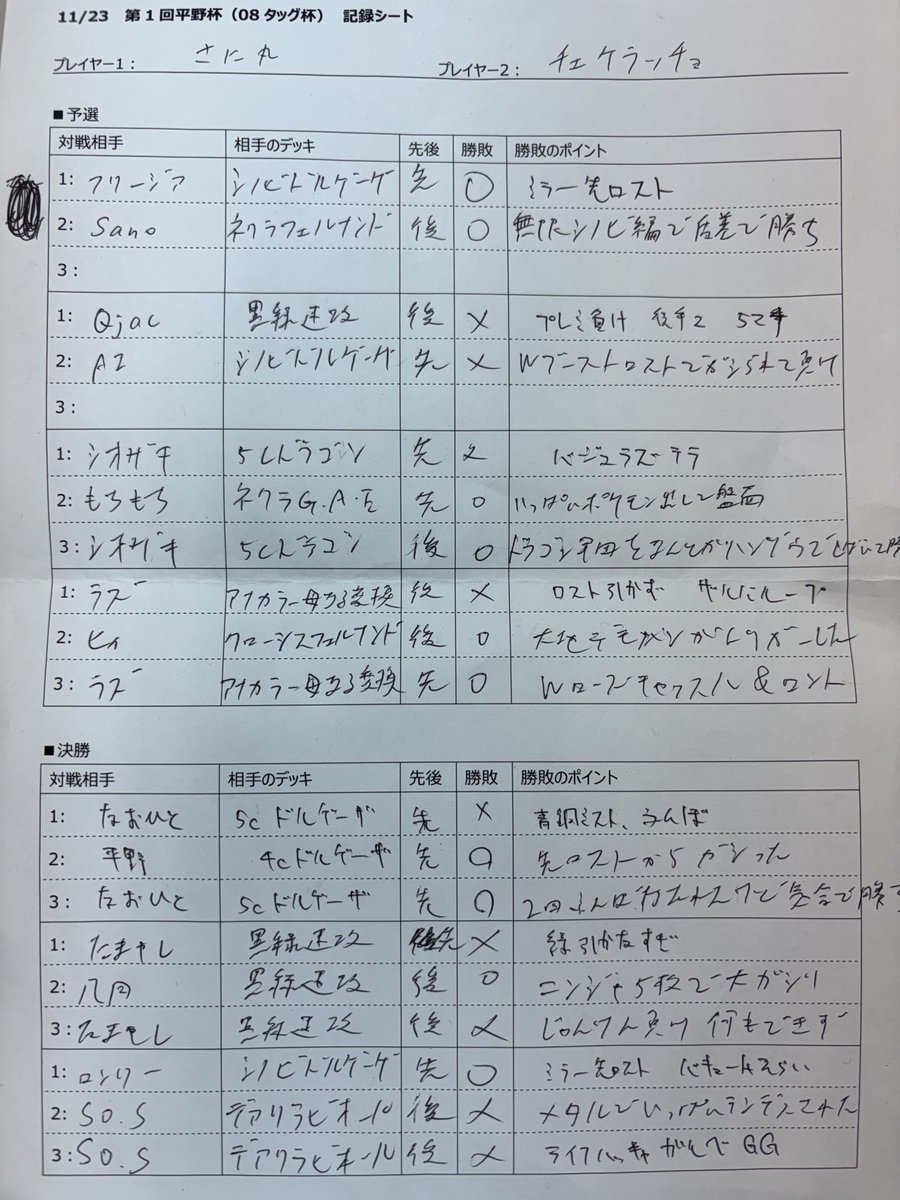 11/23 第1回平野杯（08タッグ杯） 記録シート
プレイヤー1： さに丸 プレイヤー2： チェケラッチョ
■予選
対戦相手 相手のデッキ 先後 勝敗 勝敗のポイント
1: フリージア シノビドルゲーザ 先 ○ ミラー先ロスト
2: Sano ネクラフェルナンド 後 ○ 無限シノビ編で店差で勝ち
3：
1: Qjac 黒緑速攻 後 × プレミ負け 後手2
2: AI シノビドルゲーザ 先 × Wブーストロストでガシられて負け
3：
1: シオザキ 5Cドラゴン 先 × バジュラズテラ
2: もちもち ネクラG.A.E 先 ○ いっぱいポケモン出して盤面
3: シオザキ 5Cドラゴン 後 ○ ドラゴン
1: ラズ アナカラー母なる変換 後 × ロスト引かず ザルバループ
2: ヒィ クローシスフェルナンド 後 ○
3: ラズ アナカラー母なる変換 先 ○ Wローズキャッスル&ロスト
■決勝
対戦相手 相手のデッキ 先後 勝敗 勝敗のポイント
1: なおひと 5cドルゲーザ 先 × 青銅ミスト、
2: 平野 4cドルゲーザ 先 ○ 先ロストからガシった
3: なおひと 5cドルゲーザ 先 ○ 2回 けど気合で勝
1: たまやし 黒緑速攻 先 × 緑引かなすぎ
2: 八同 黒緑速攻 後 ○ ニンジャ5枚で大ガジリ
3: たまやし 黒緑速攻 後 × じゃんけん負け 何もできず
1: ロンリー シノビドルゲーザ 先 ○ ミラー先ロスト バキュームえらい
2: SO.S デアリラビオール 後 × メタルでいっぱいランデスされた
3: SO.S デアクラビオール 後 × GG